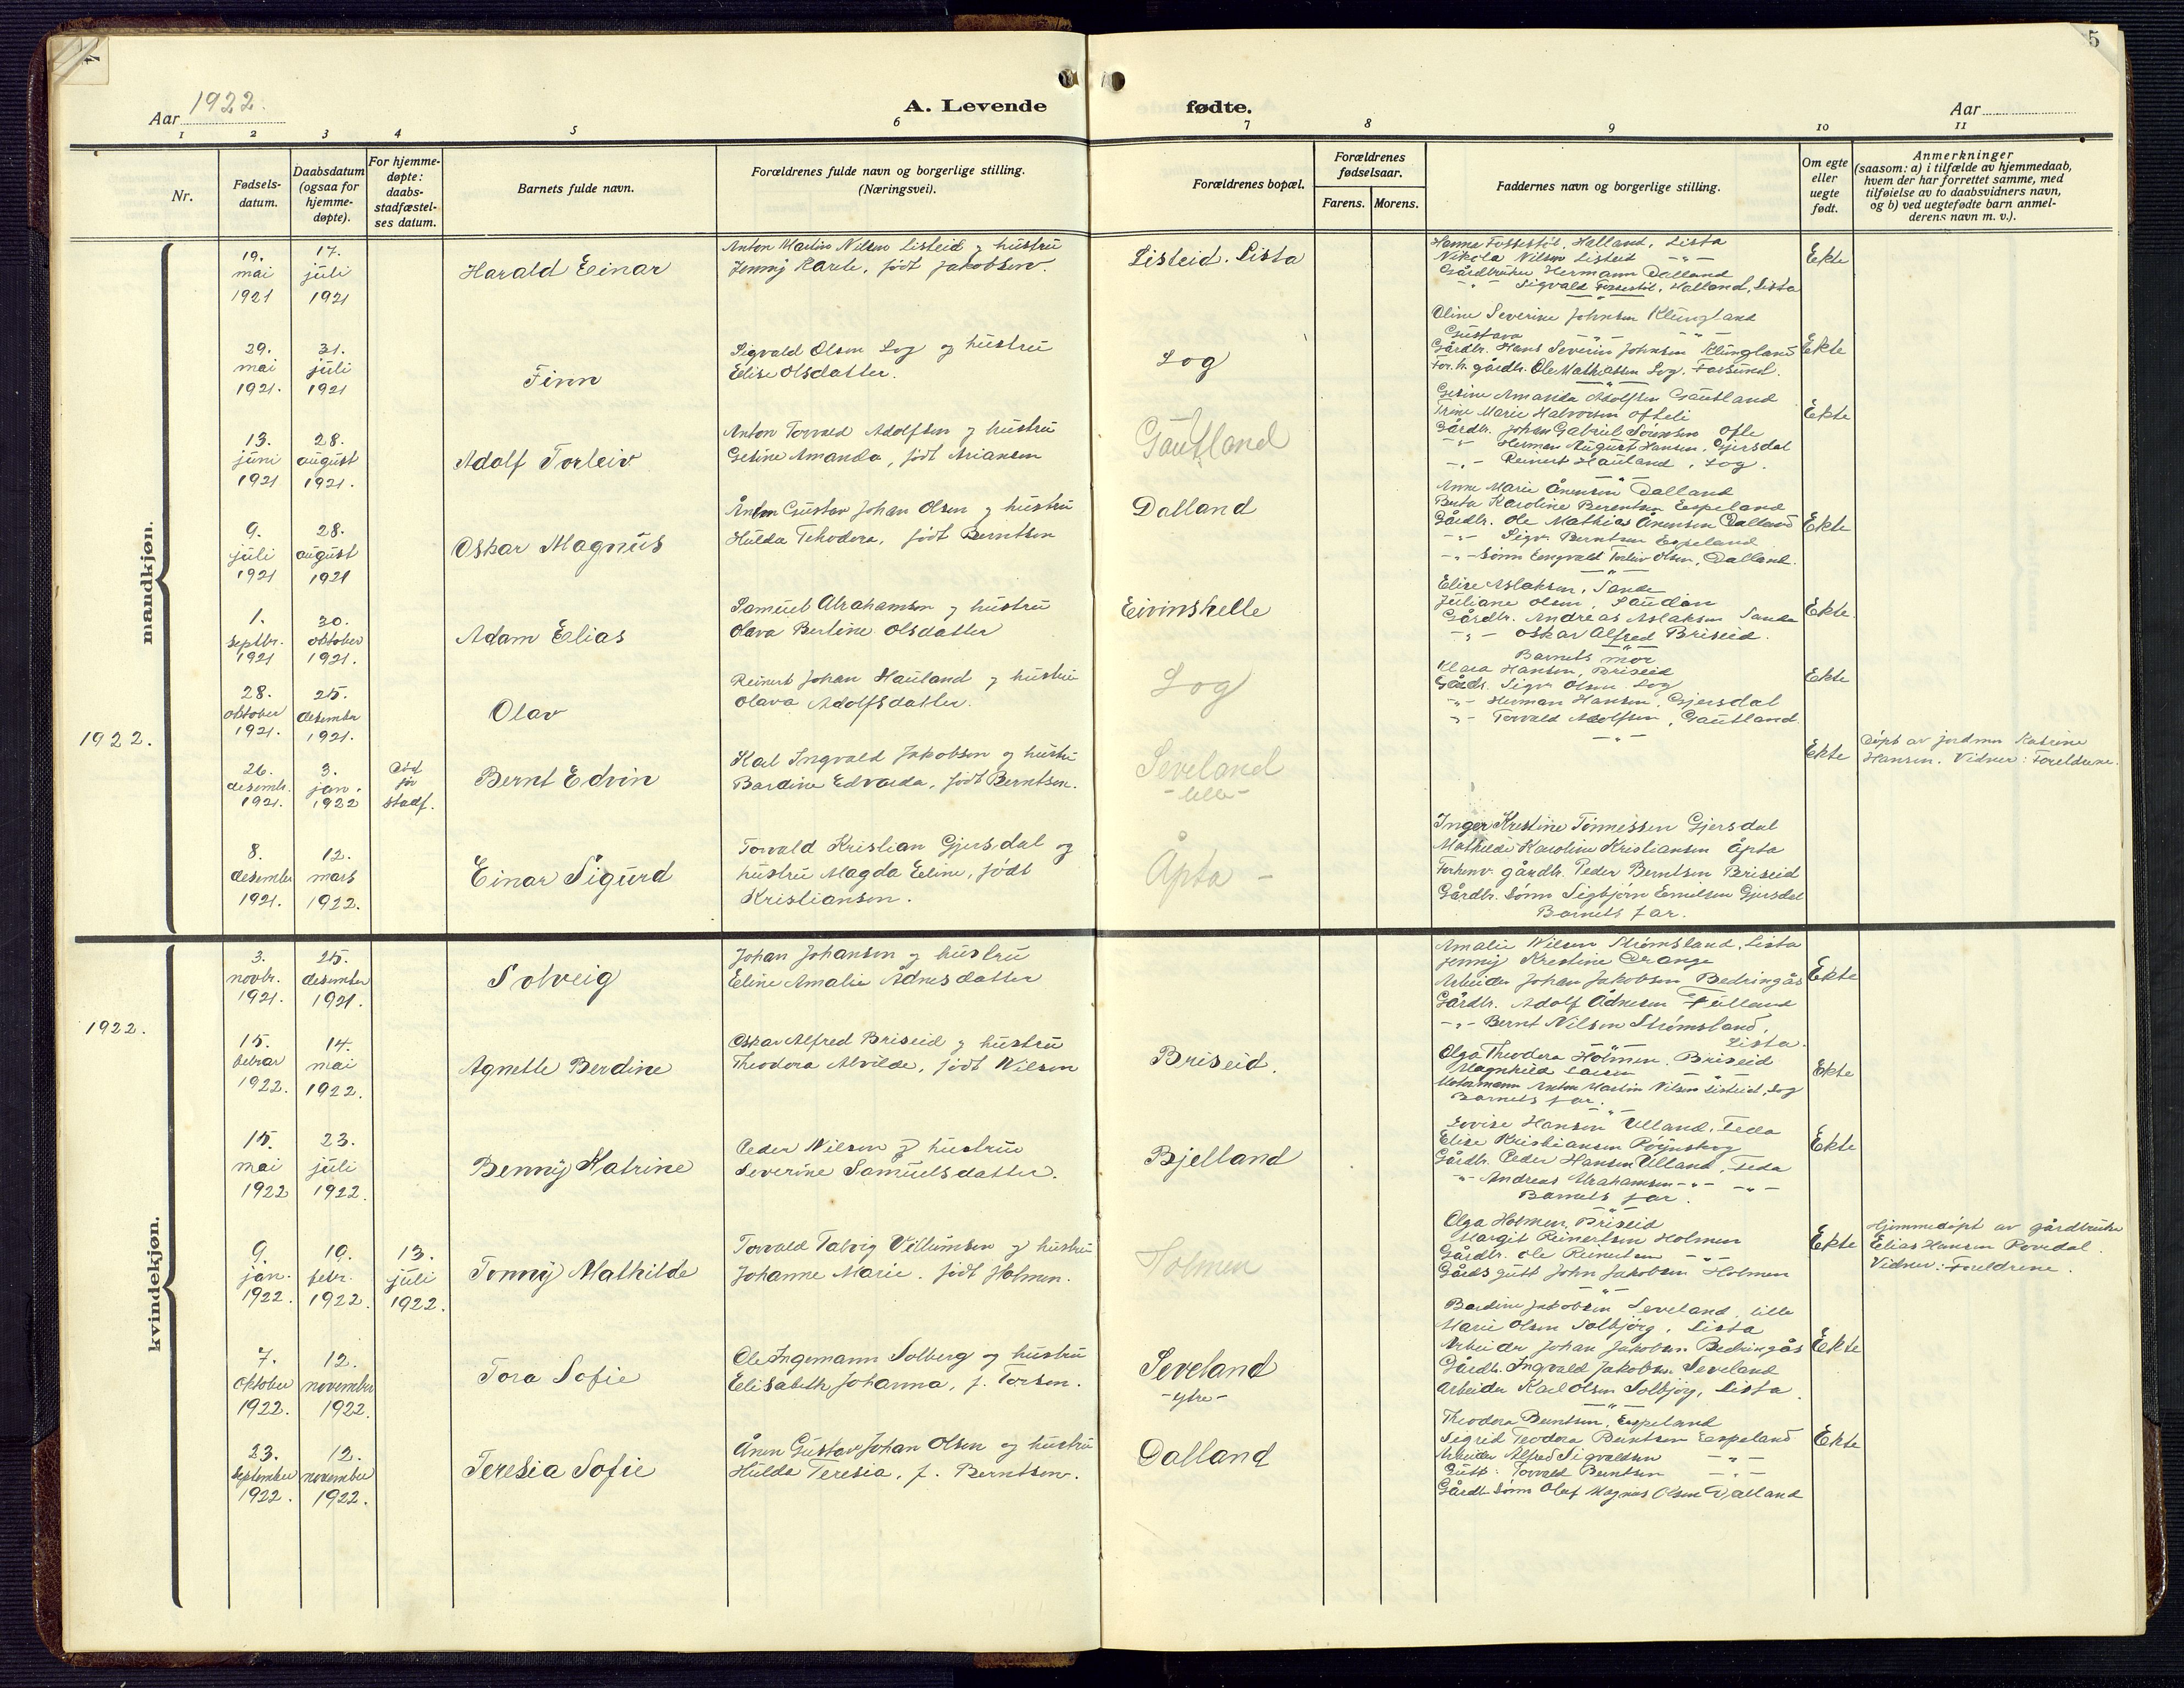 4
5
Aar 1922.
A. Levende fødte.
Aar
1 2 3 4 5 6 7 8 9 10 11
Nr.
Fødsels-
datum.
Daabsdatum
(ogsaa for
hjemme-
døpte).
For hjemme-
døpte:
daabs-
stadfæstel-
ses datum.
Barnets fulde navn.
Forældrenes fulde navn og borgerlige stilling.
(Næringsvei).
Forældrenes bopæl.
Forældrenes
fødselsaar.
Farens. Morens.
Faddernes navn og borgerlige stilling.
Om egte
eller
uegte
født.
Anmerkninger
(saasom: a) i tilfælde av hjemmedaab,
hvem der har forrettet samme, med
tilføielse av to daabsvidners navn,
og b) ved uegtefødte barn anmel-
derens navn m. v.).
mandkjøn.
1922.
19.
mai
1921
17.
juli
1921
Harald Einar
Anton Martin Nilsen Listeid og hustru
Jenny Karele, født Jakobsen.
Listeid. Lista
Hanna Fossestøl, Halland, Lista
Nikola Nilsen Listeid -"-
Gårdbruker Hermann Dalland
-"- Sigvald Fossestøl, Halland, Lista
Ekte
29.
mai
1921.
31.
juli
1921
Finn
Sigvald Olsen Log og hustru
Elise Olsdatter.
Log
Oline Severine Johnsen Klungland
Gustava -"- -"-
Gårdbr. Hans Severin Johnsen Klungland
For. h. gårdbr. Ole Mathiassen Log, Farsund.
Ekte
13.
juni
1921
28.
august
1921.
Adolf Torleiv
Anton Torvald Adolfsen og hustru
Gesine Amanda, født Ariansen
Gautland
Gesine Amanda Adolfsen Gautland
Trine Marie Halvorsen Ofteli
Gårdbr. Johan Gabriel Sørensen Ofte
-"- Herman August Hansen, Gjersdal
-"- Reinert Hauland, Log.
Ekte
9.
juli
1921
28.
august
1921
Oskar Magnus
Ånen Gustav Johan Olsen og hustru
Hulda Tehodora, født Berntsen
Dalland
Anne Marie Ånensen Dalland
Berta Karoline Berentsen Espeland
Gårdbr. Ole Mathias Ånensen Dalland
-"- Sigv. Berntsen Espeland
-"- Sønn Engvald Torleiv Olsen, Dalland.
Ekte
1.
septbr.
1921
30.
oktober
1921.
Adam Elias
Samuel Abrahamsen og hustru
Olava Bertine Olsdatter
Eivinskelle
Elise Aslaksen, Sande
Juliane Olsen, Saudan
Gårdbr. Andreas Aslaksen Sande
-"- Oskar Alfred Briseid.
Ekte.
28.
oktober
1921.
25.
desember
1921.
Olav
Reinert Johan Hauland og hustru
Olava Adolfsdatter.
Log
Barnets mor
Klara Hansen, Briseid
Gårdb. Sigv. Olsen Log
-"- Herman Hansen, Gjersdal
-"- Torvald Adolfsen, Gautland
Ekte
26.
desembr.
1921.
3.
jan.
1922
Død
før
stadf.
Bernt Edvin
Karl Ingvald Jakobsen og hustru
Bardine Edvarda, født Berntsen.
Seveland
- lille -
Ekte
Døpt av jordmor Katrine
Hansen. Vidner: Foreldrene.
8.
desember
1921.
12.
mars
1922.
Einar Sigurd
Torvald Kristian Gjersdal og
hustru Magda Eline, født
Kristiansen.
Åpta -
Inger Kristine Tønnessen Gjersdal
Mathilde Karoline Kristiansen Åpta
Forhenv. gårdbr. Peder Berntsen Briseid
Gårdbr. Sønn Sigbjørn Emilsen Gjersdal
Barnets far.
kvindekjøn.
1922.
3.
novbr.
1921.
25.
desember
1921.
Solveig
Johan Johansen og hustru
Eline Amalie Ådnesdatter
Amalie Nilsen Strømsland, Lista
Jenny Kristine Drange
Arbeider Johan Jakobsen Bedringås
Gårdbr. Adolf Ådnesen Fulland
-"- Bernt Nilsen Strømsland,
Lista.
Ekte
15.
febrar
1922.
14.
mai
1922.
Agnette Berdine
Oskar Alfred Briseid og hustru
Theodora Alvilde, født Nilsen
Briseid.
Olga Theodora Holmen, Briseid
Magnhild Larsen -"-
Motormann Anton Martin Nilsen Listeid, Log
Barnets far.
Ekte
15.
mai
1922
23.
juli
1922.
Benny Katrine
Peder Nilsen og hustru
Severine Samuelsdatter.
Bjelland
Lovise Hansen Ulland, Feda
Elise Kristiansen Røynskog
Gårdbr. Peder Hansen Ulland, Feda
-"- Andreas Abrahamsen -"- -"-
Barnets far.
Ekte
9.
jan.
1922.
19.
febr.
1922.
13.
juli
1922.
Tonny Mathilde
Torvald Talvig Villumsen og hustru
Johanne Marie, født Holmen.
Holmen
Olga Holmen, Briseid
Margit Reinertsen Holmen
Gårdbr. Ole Reinertsen -"-
Gårdsgutt John Jakobsen Holmen
Ekte
Hjemmedøpt av gårdbruker
Elias Hansen Povedal.
Vidner: Foreldrene.
7.
Oktober
1922.
12.
november
1922.
Tora Sofie
Ole Ingemann Solberg og hustru
Elisabeth Johanna, f. Torsen.
Seveland
- ytre -
Bardine Jakobsen Seveland, lille
Marie Olsen Solbjørg, Lista
Arbeider Johan Jakobsen Bedringås
Gårdbr. Ingvald Jakobsen Seveland
Arbeider Karl Olsen Solbjørg, Lista.
Ekte
23.
September
1922.
12.
november
1922.
Teresia Sofie
Ånen Gustav Johan Olsen og hustru
Hulda Teresia, f. Berntsen.
Dalland
Theodora Berntsen, Espeland
Sigrid Teodora Berntsen Espeland
Arbeider Alfred Sigvaldsen -"-
Gutt: Torvald Berntsen -"-
Gårdb. Sønn Olaf Magnus Olsen Dalland
Ekte